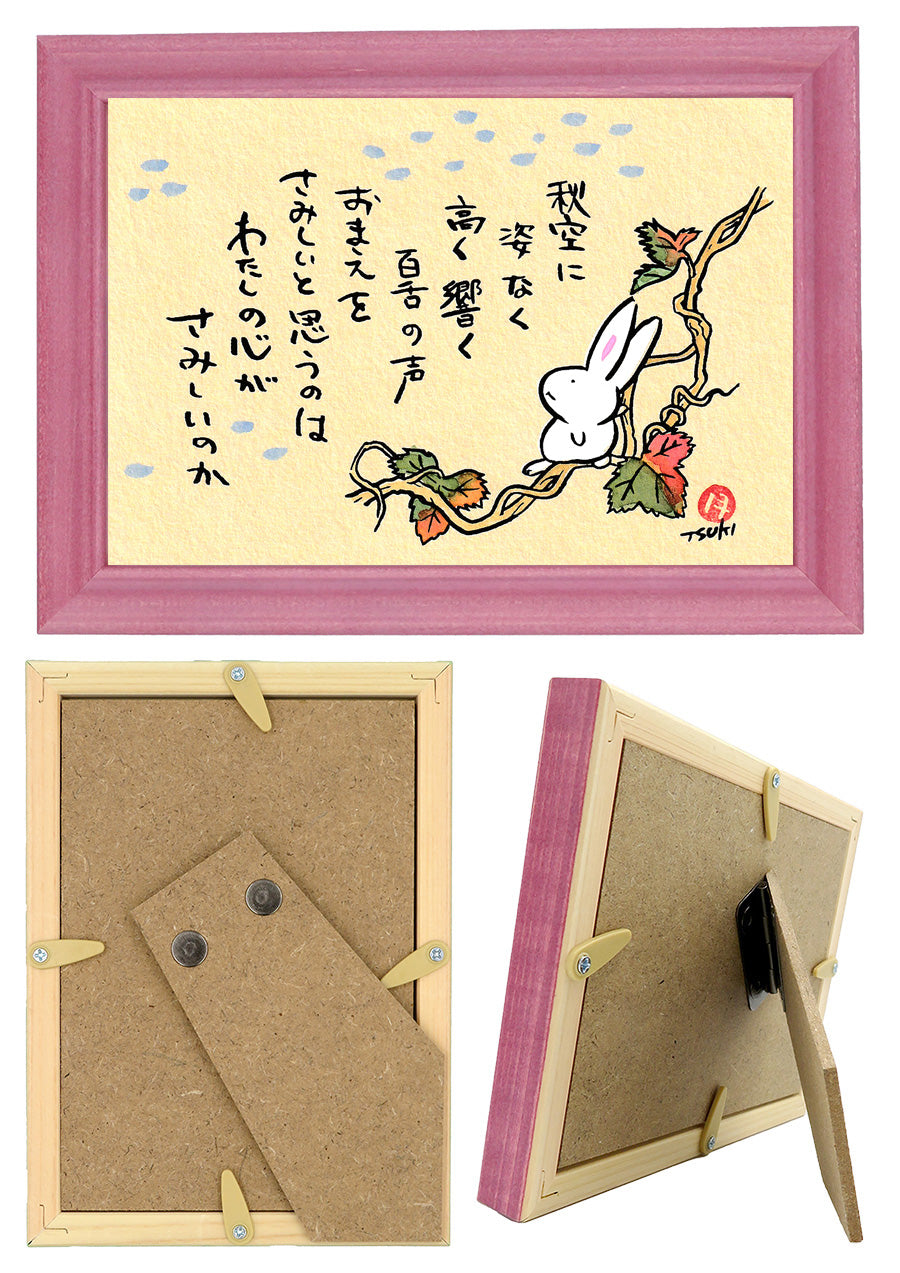 秋空に
姿なく
高く響く
百舌の声
おまえを
さみしいと思うのは
わたしの心が
さみしいのか
月
TSUKI